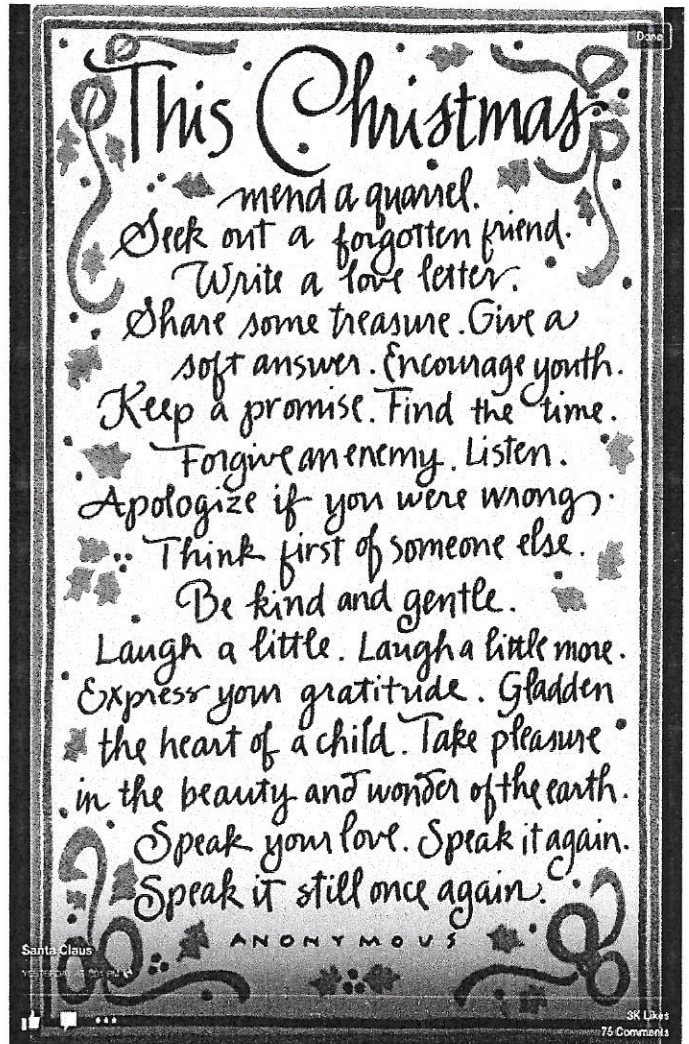 Done
This Christmas
mend a quarrel.
Seek out a forgotten friend.
Write a love letter.
Share some treasure. Give a
soft answer. Encourage youth.
Keep a promise. Find the time.
Forgive an enemy. Listen.
Apologize if you were wrong.
Think first of someone else.
Be kind and gentle.
Laugh a little. Laugh a little more.
Express your gratitude. Gladden
the heart of a child. Take pleasure
in the beauty and wonder of the earth.
Speak your love. Speak it again.
Speak it still once again.
ANONYMOUS
Santa Claus
YESTERDAY AT
3K Likes
75 Comments